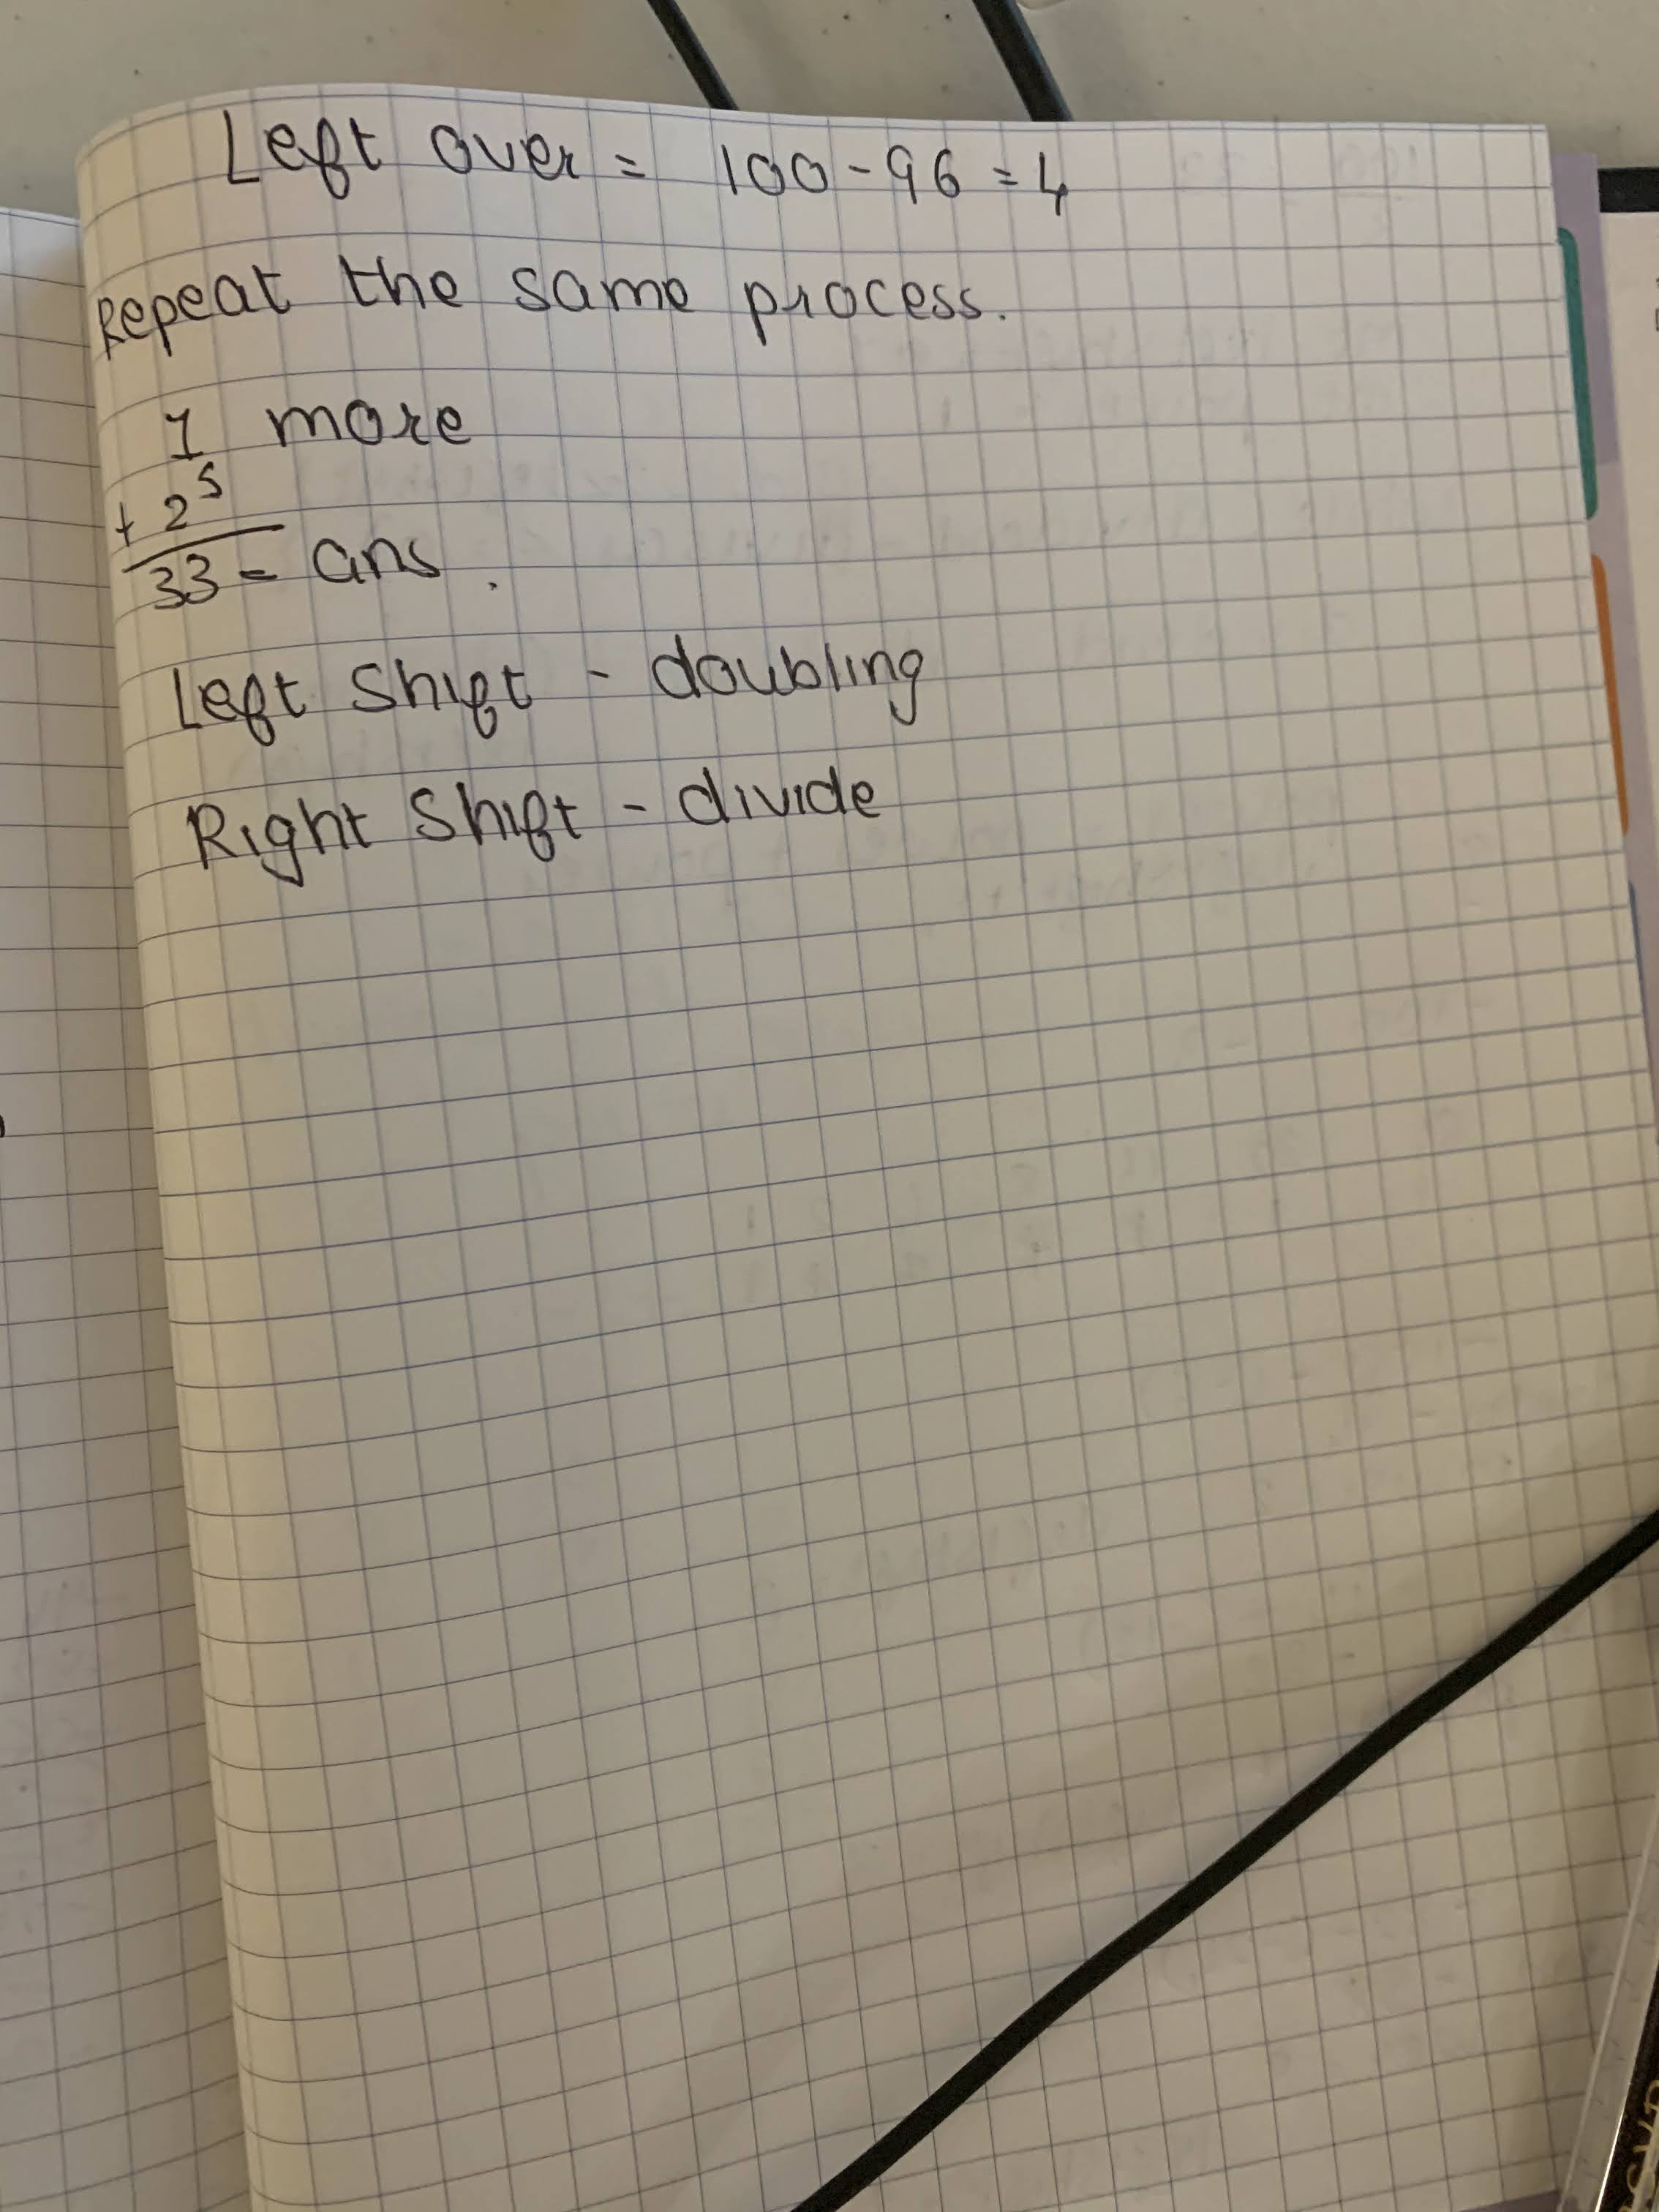 Left over = 100 - 96 = 4
Repeat the same process.
1 more
+ 2⁵
33 = ans.
Left Shift - doubling
Right Shift - divide